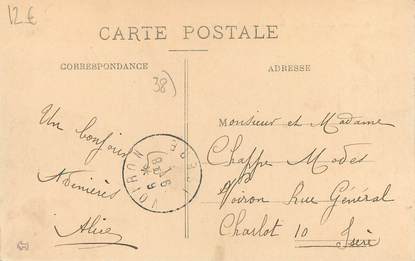 12 €
CARTE POSTALE
CORRESPONDANCE
ADRESSE
38)
Un bonjour
Alice
Monsieur et Madame
Chappe Modes
Voiron Rue Général
Charlot 10 Isère
VOIRON
ISERE